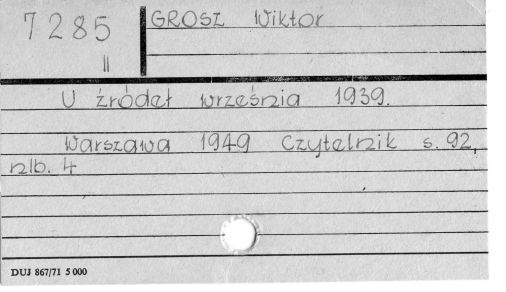 7285
II
GROSZ Wiktor
U źródeł września 1939.
Warszawa 1949 Czytelnik s. 92,
nlb. 4
DUJ 867/71 5 000